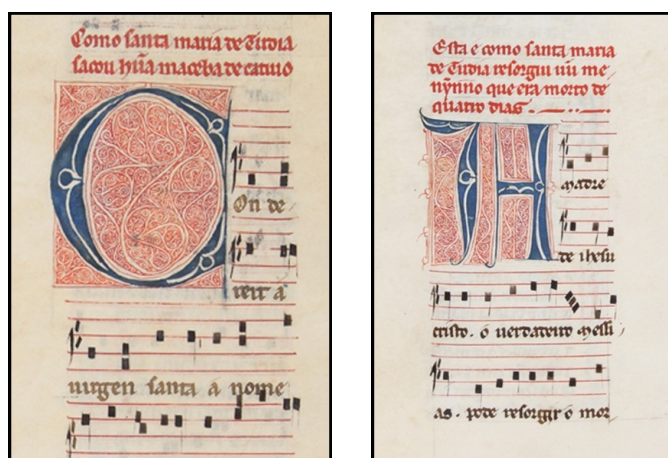 Como santa maria de Tudia
sacou hũa maceba de catiuo
On de
ueit a
uirgen santa á nome
Esta e como santa maria
de Tudia resorgiu un me
nynno que era morto de
quatro dias.
A madre
de ihesu
cristo. o uerdadeiro messi
as. pode resorgir o mor